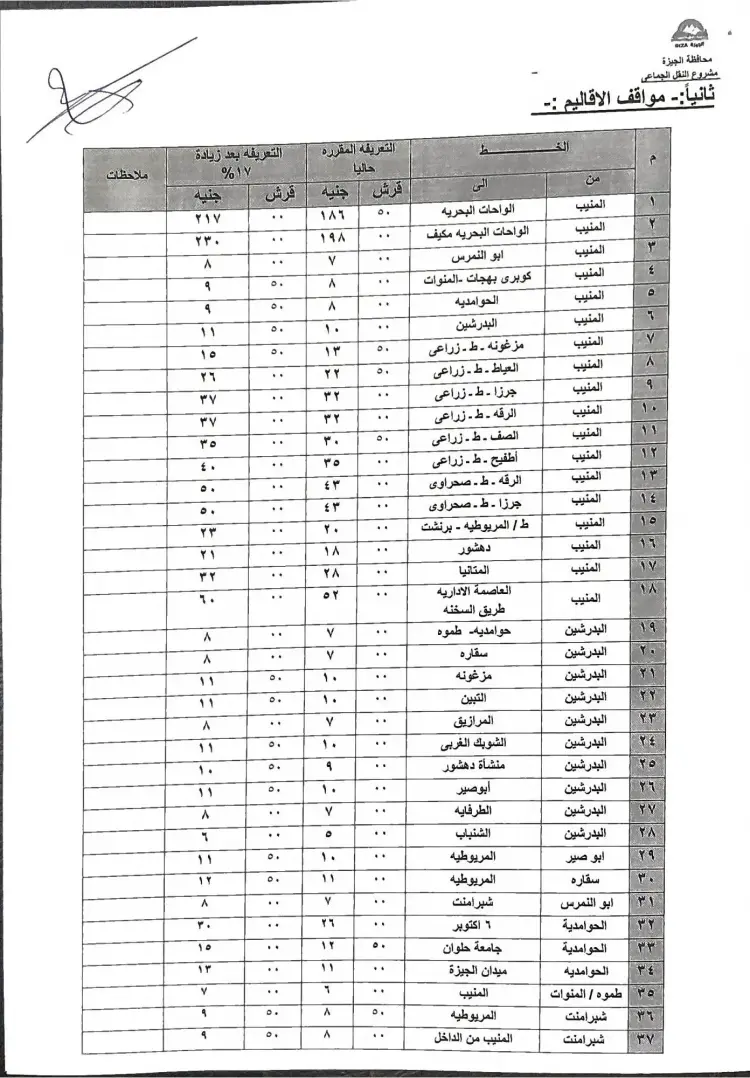 GIZA الجيزة
محافظة الجيزة
مشروع النقل الجماعى
ثانياً:- مواقف الاقاليم :-
م الخـــــط التعريفه المقرره حاليا التعريفه بعد زيادة ١٧% ملاحظات
من الى قرش جنيه قرش جنيه
١ المنيب الواحات البحريه ٥٠ ١٨٦ ٠٠ ٢١٧
٢ المنيب الواحات البحريه مكيف ٠٠ ١٩٨ ٠٠ ٢٣٠
٣ المنيب ابو النمرس ٠٠ ٧ ٠٠ ٨
٤ المنيب كوبرى بهجات -المنوات ٠٠ ٨ ٥٠ ٩
٥ المنيب الحوامديه ٠٠ ٨ ٥٠ ٩
٦ المنيب البدرشين ٠٠ ١٠ ٥٠ ١١
٧ المنيب مزغونه - ط - زراعى ٥٠ ١٣ ٥٠ ١٥
٨ المنيب العياط - ط - زراعى ٥٠ ٢٢ ٠٠ ٢٦
٩ المنيب جرزا - ط - زراعى ٠٠ ٣٢ ٠٠ ٣٧
١٠ المنيب الرقه - ط - زراعى ٠٠ ٣٢ ٠٠ ٣٧
١١ المنيب الصف - ط - زراعى ٥٠ ٣٠ ٠٠ ٣٥
١٢ المنيب أطفيح - ط - زراعى ٠٠ ٣٥ ٠٠ ٤٠
١٣ المنيب الرقه - ط - صحراوى ٠٠ ٤٣ ٠٠ ٥٠
١٤ المنيب جرزا - ط - صحراوى ٠٠ ٤٣ ٠٠ ٥٠
١٥ المنيب ط / المريوطيه - برنشت ٠٠ ٢٠ ٠٠ ٢٣
١٦ المنيب دهشور ٠٠ ١٨ ٠٠ ٢١
١٧ المنيب المتانيا ٠٠ ٢٨ ٠٠ ٣٢
١٨ المنيب العاصمة الاداريه ٠٠ ٥٢ ٠٠ ٦٠
طريق السخنه
١٩ البدرشين حوامديه- طموه ٠٠ ٧ ٠٠ ٨
٢٠ البدرشين سقاره ٠٠ ٧ ٠٠ ٨
٢١ البدرشين مزغونه ٠٠ ١٠ ٥٠ ١١
٢٢ البدرشين التبين ٠٠ ١٠ ٥٠ ١١
٢٣ البدرشين المرازيق ٠٠ ٧ ٠٠ ٨
٢٤ البدرشين الشوبك الغربى ٠٠ ١٠ ٥٠ ١١
٢٥ البدرشين منشأة دهشور ٠٠ ٩ ٥٠ ١٠
٢٦ البدرشين أبوصير ٠٠ ١٠ ٥٠ ١١
٢٧ البدرشين الطرفايه ٠٠ ٧ ٠٠ ٨
٢٨ البدرشين الشنباب ٠٠ ٥ ٠٠ ٦
٢٩ ابو صير المريوطيه ٠٠ ١٠ ٥٠ ١١
٣٠ سقاره المريوطيه ٠٠ ١١ ٥٠ ١٢
٣١ ابو النمرس شبرامنت ٠٠ ٧ ٠٠ ٨
٣٢ الحوامدية ٦ اكتوبر ٠٠ ٢٦ ٠٠ ٣٠
٣٣ الحوامدية جامعة حلوان ٥٠ ١٢ ٠٠ ١٥
٣٤ الحوامديه ميدان الجيزة ٠٠ ١١ ٠٠ ١٣
٣٥ طموه / المنوات المنيب ٠٠ ٦ ٠٠ ٧
٣٦ شبرامنت المريوطيه ٥٠ ٨ ٥٠ ٩
٣٧ شبرامنت المنيب من الداخل ٠٠ ٨ ٥٠ ٩